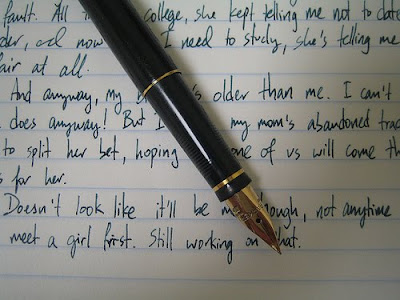 fault. All college, she kept telling me not to date
now I need to study, she's telling me
at all.
And anyway, my older than me. I can't
does anyway! But my mom's abandoned
to split her bet, hoping one of us will come
for her.
Doesn't look like it'll be not anytime
meet a girl first. Still working on that.